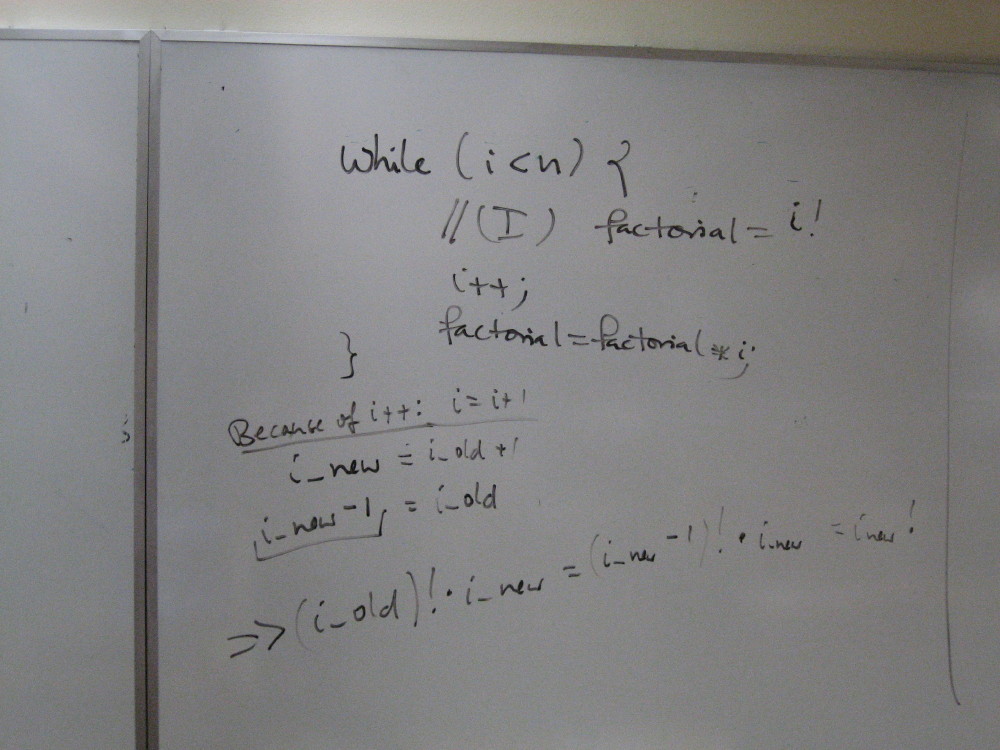 while (i<n) {
//(I) factorial = i!
i++;
factorial = factorial * i;
}
Because of i++: i = i+1
i_new = i_old +1
i_new -1 = i_old
=> (i_old)! · i_new = (i_new -1)! · i_new = i_new!